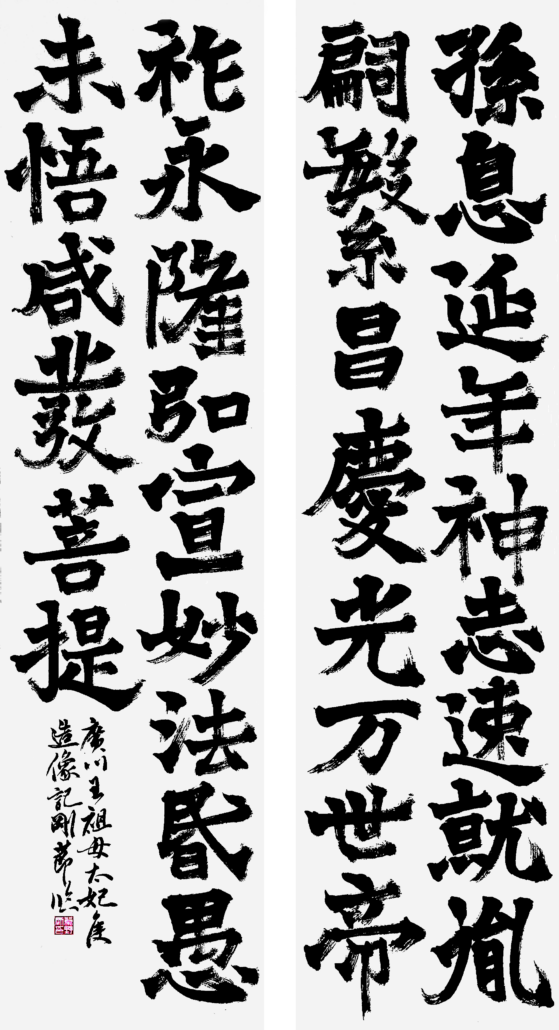 孫息延年神志速就胤
嗣繁昌慶光万世帝
祚永隆弘宣妙法昬愚
未悟咸發菩提
廣川王祖母太妃侯
造像記剛節臨